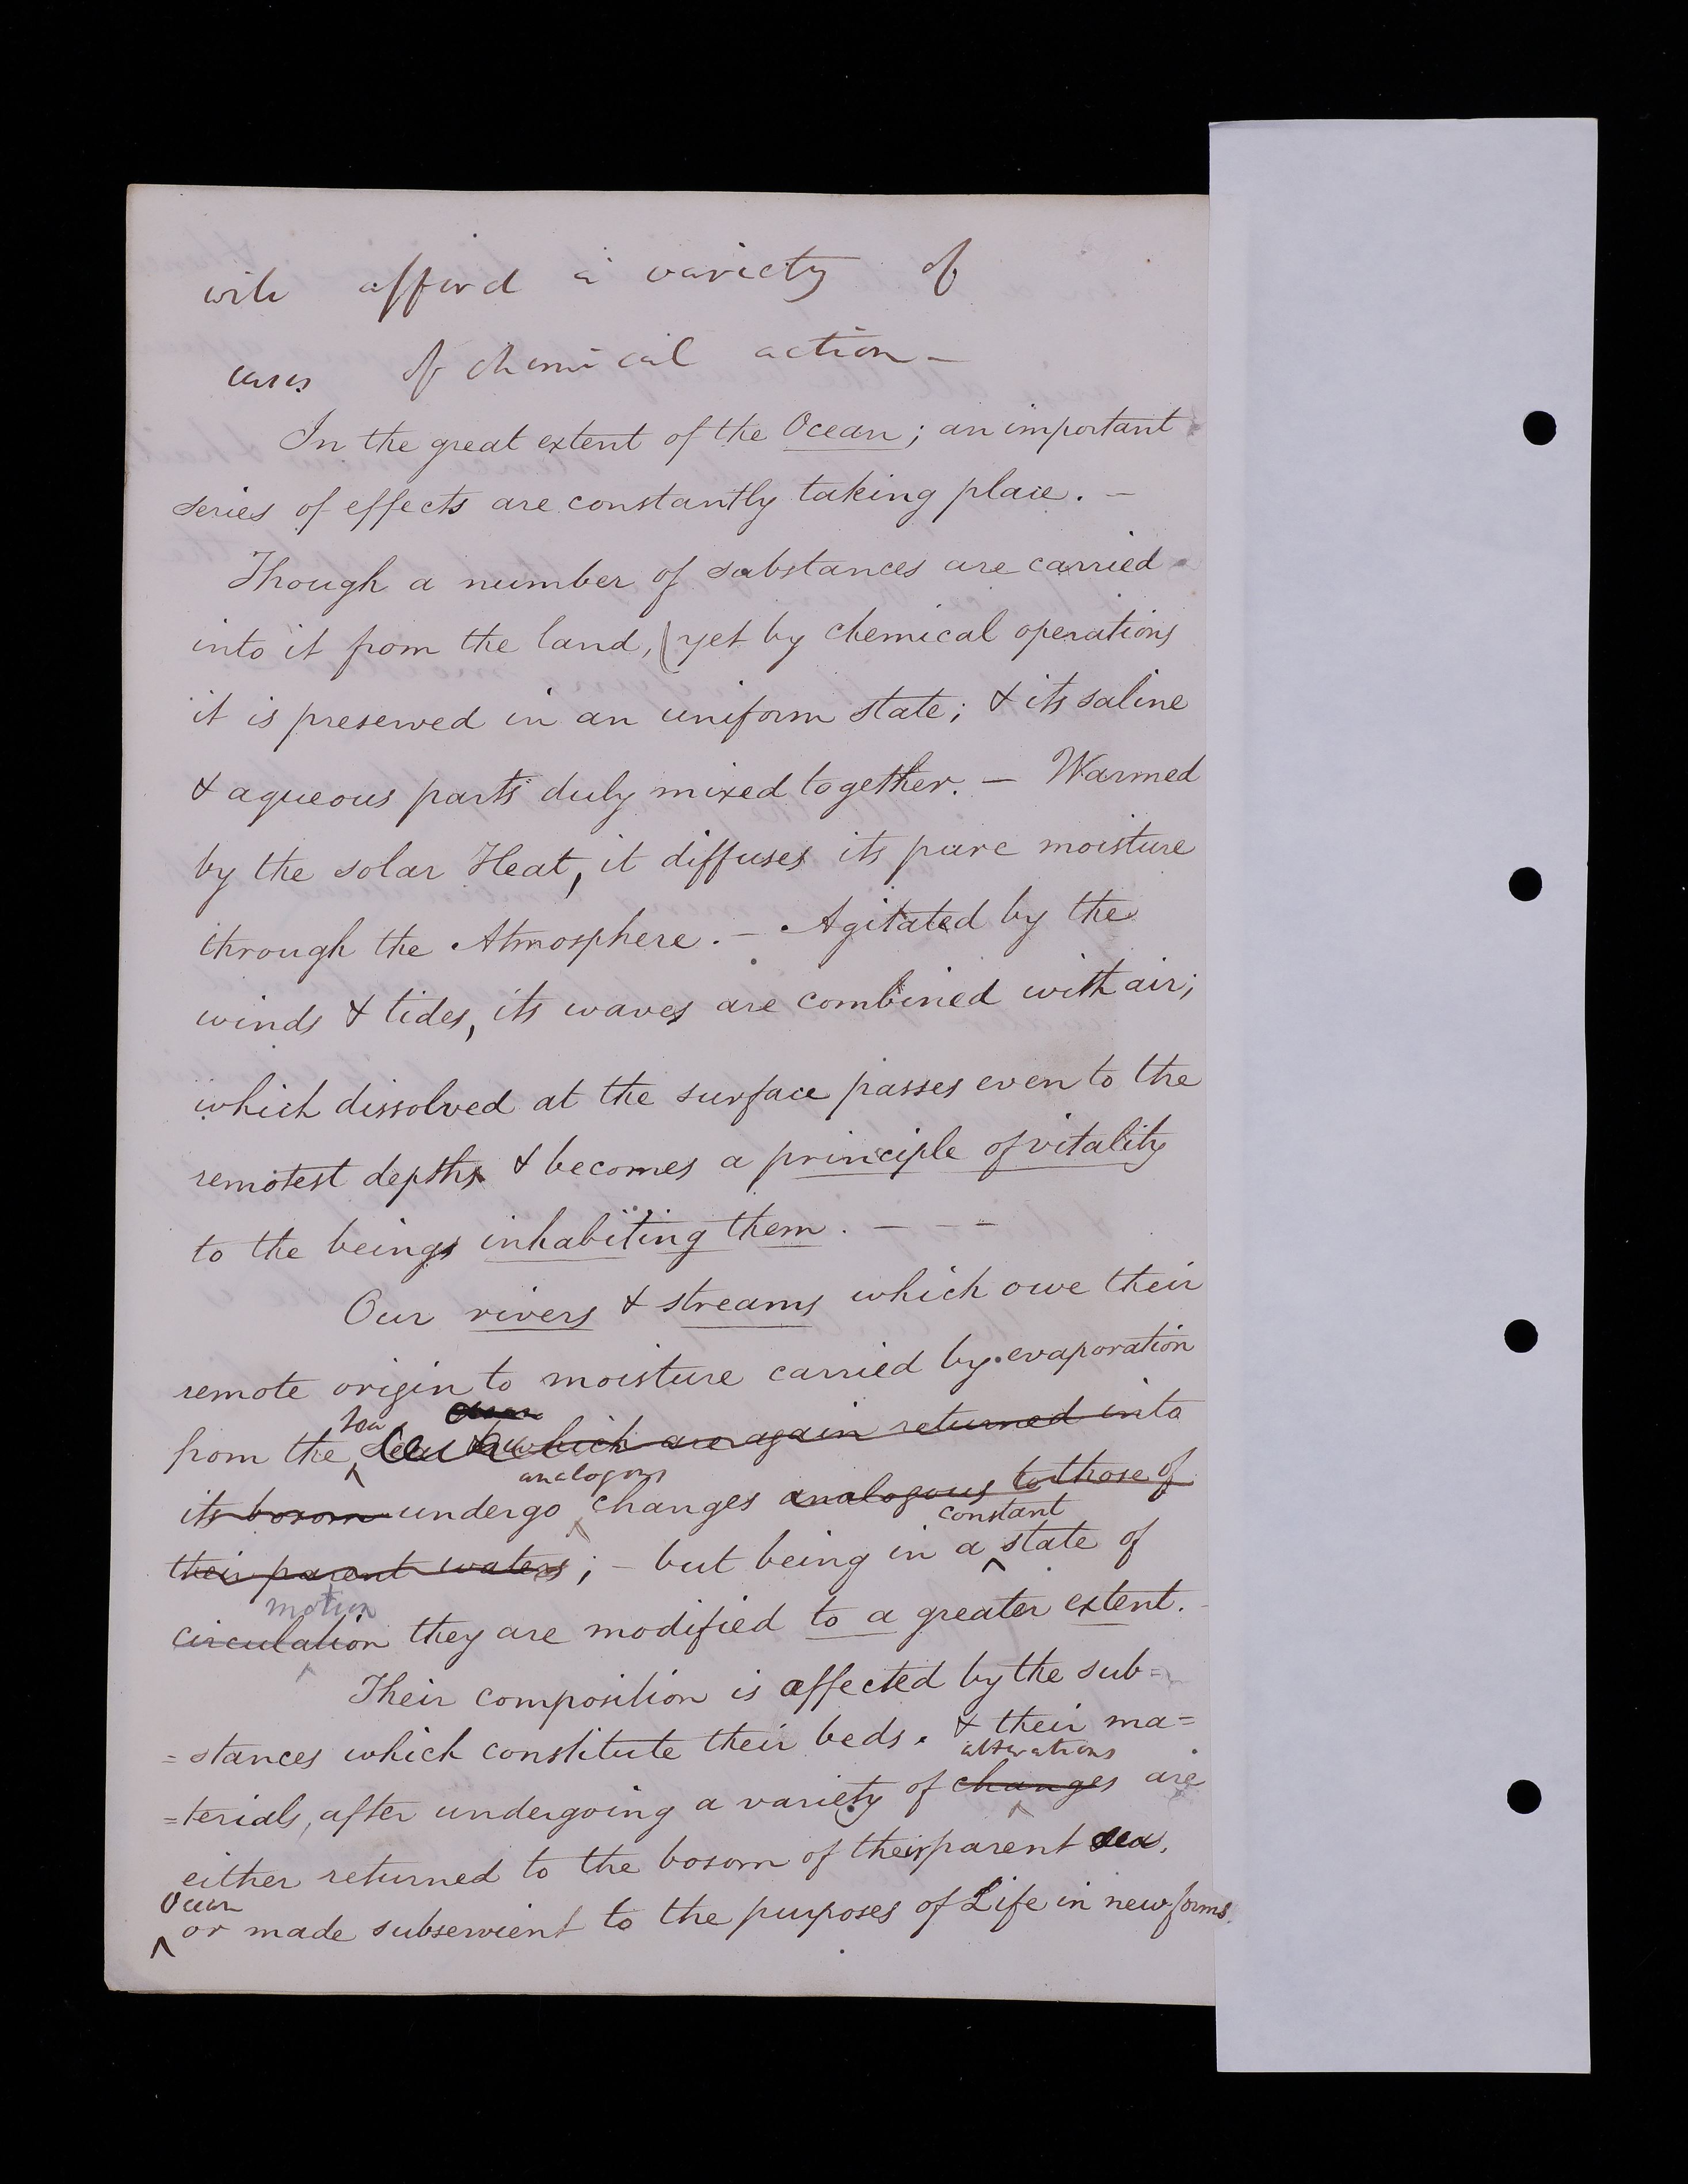 will afford a variety of
cases of chemical action –
In the great extent of the Ocean; an important
series of effects are constantly taking place. –
Though a number of substances are carried
into it from the land, (yet by chemical operations
it is preserved in an uniform state; & its saline
& aqueous parts duly mixed together. – Warmed
by the solar Heat, it diffuses its pure moisture
through the Atmosphere. – Agitated by the
winds & tides, its waves are combined with air;
which dissolved at the surface passes even to the
remotest depths & becomes a principle of vitality
to the beings inhabiting them. – – –
Our rivers & streams which owe their
remote origin to moisture carried by evaporation
Ocean
from the sea which are again returned into
analogous
its bosom undergo changes analogous to those of
constant
their parent waters; – but being in a state of
motion
circulation they are modified to a greater extent.
Their composition is affected by the sub=
=stances which constitute their beds. & their ma=
alterations
=terials, after undergoing a variety of changes are
either returned to the bosom of their parent sea,
Ocean
or made subservient to the purposes of Life in new forms.